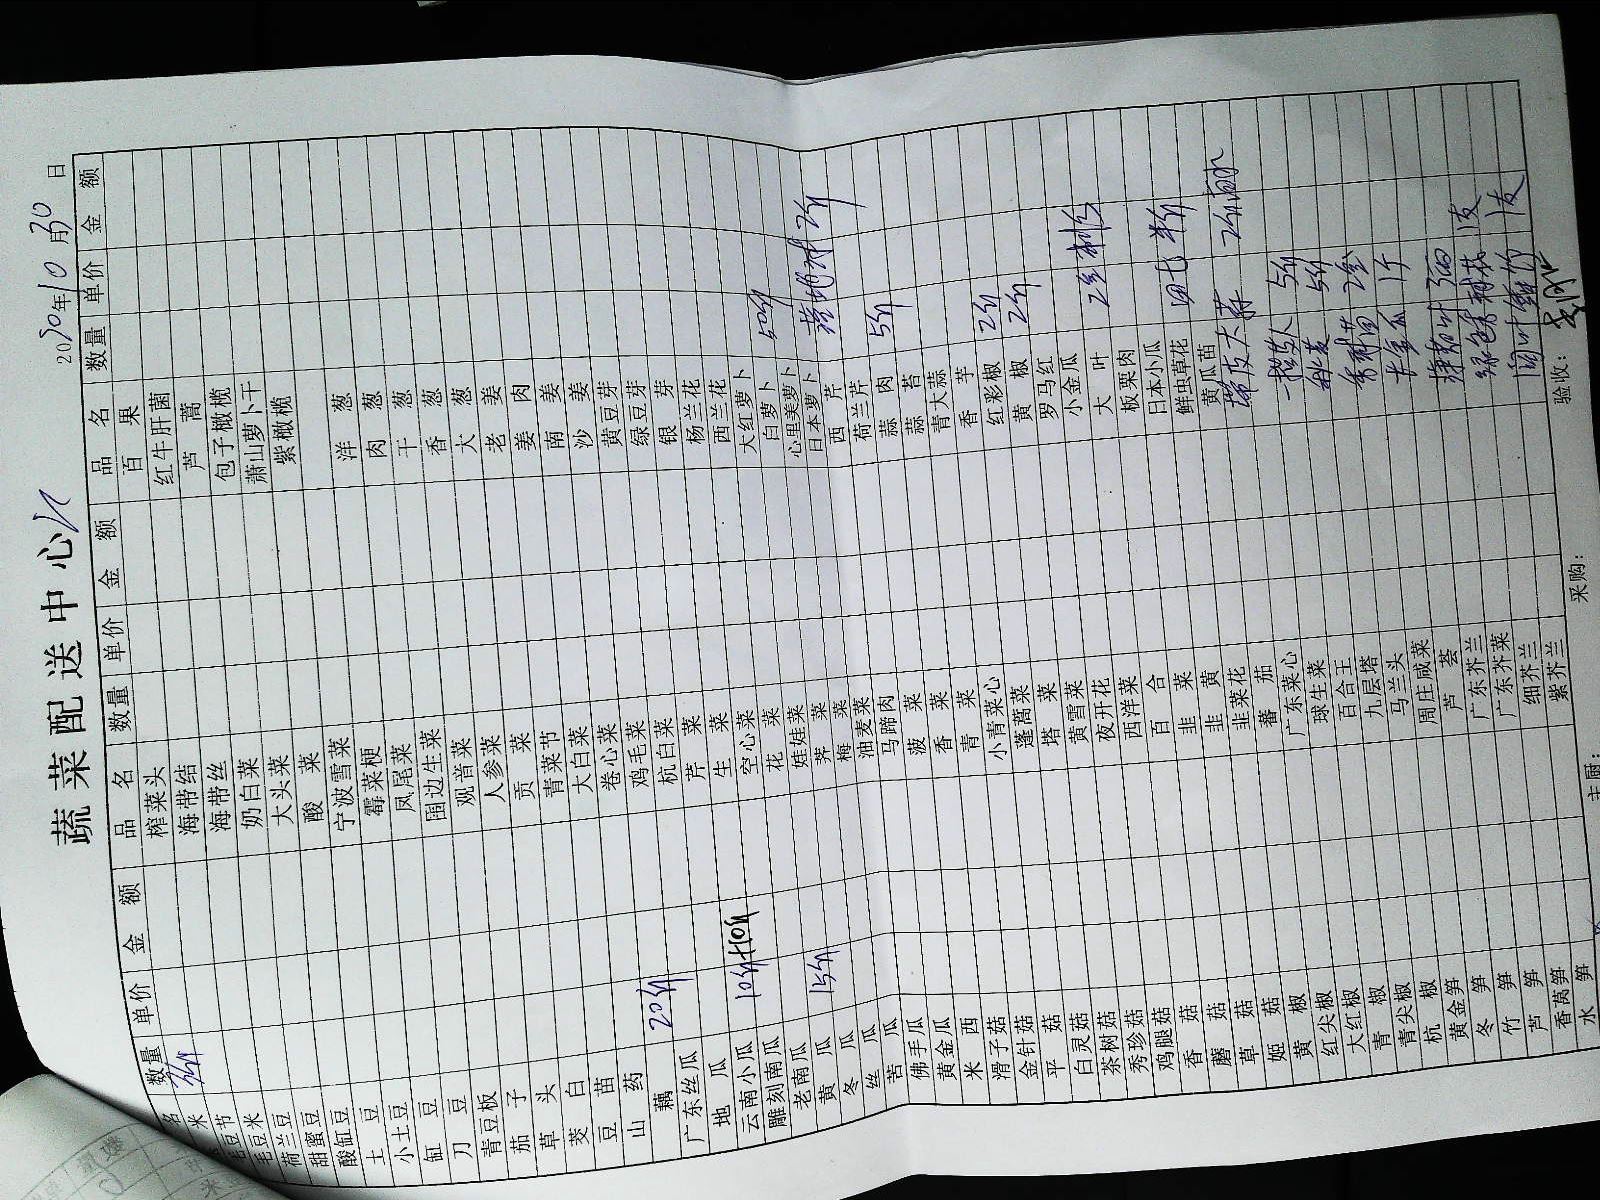 蔬菜配送中心
2030年10月30日
品名 数量 单价 金额 品名 数量 单价 金额 品名 数量 单价 金额
米 3斤 榨菜头 百果
毛豆节 海带结 红牛肝菌
毛豆米 海带丝 芦蒿
荷兰豆 奶白菜 包子橄榄
甜蜜豆 大头菜 萧山萝卜干
酸缸豆 酸菜 紫橄榄
土豆 宁波雪菜
小土豆 霉菜梗 洋葱
缸豆 凤尾菜 肉葱
刀豆 围边生菜 干葱
青豆板 观音菜 香葱
茄子 人参菜 大葱
草头 贡菜 老姜
茭白 青菜节 姜肉
豆苗 大白菜 南姜
山药 卷心菜 沙姜
藕 20斤 鸡毛菜 黄豆芽
广东丝瓜 杭白菜 绿豆芽
地瓜 芹菜 银芽
云南小瓜 10斤 生菜 杨兰花
雕刻南瓜 空心菜 西兰花
老南瓜 花菜 大红萝卜
黄瓜 15斤 娃娃菜 白萝卜 50斤
冬瓜 荠菜 心里美萝卜
丝瓜 梅菜 日本萝卜
苦瓜 油麦菜 西芹
佛手瓜 马蹄肉 荷兰芹
黄金瓜 菠菜 蒜肉 5斤
米西 香菜 蒜苔
滑子菇 青菜 青大蒜
金针菇 小青菜心 香芋
平菇 蓬蒿菜 红彩椒 2斤
白灵菇 塔菜 黄椒 2斤
茶树菇 黄雪菜 罗马红
秀珍菇 夜开花 小金瓜
鸡腿菇 西洋菜 大叶
香菇 百合 板栗肉
蘑菇 韭菜 日本小瓜
草菇 韭黄 鲜虫草花 半斤
姬菇 韭菜花 黄瓜苗
黄椒 番茄 带皮大蒜 2斤
红尖椒 广东菜心
大红椒 球生菜 5斤
青椒 百合王 5斤
青尖椒 九层塔 2盒
杭椒 马兰头 1个
黄金笋 周庄咸菜
冬笋 芦荟
竹笋 广东芥兰
芦笋 广东芥菜
香莴笋 细芥兰
水笋 紫芥兰
主厨: 采购: 验收: